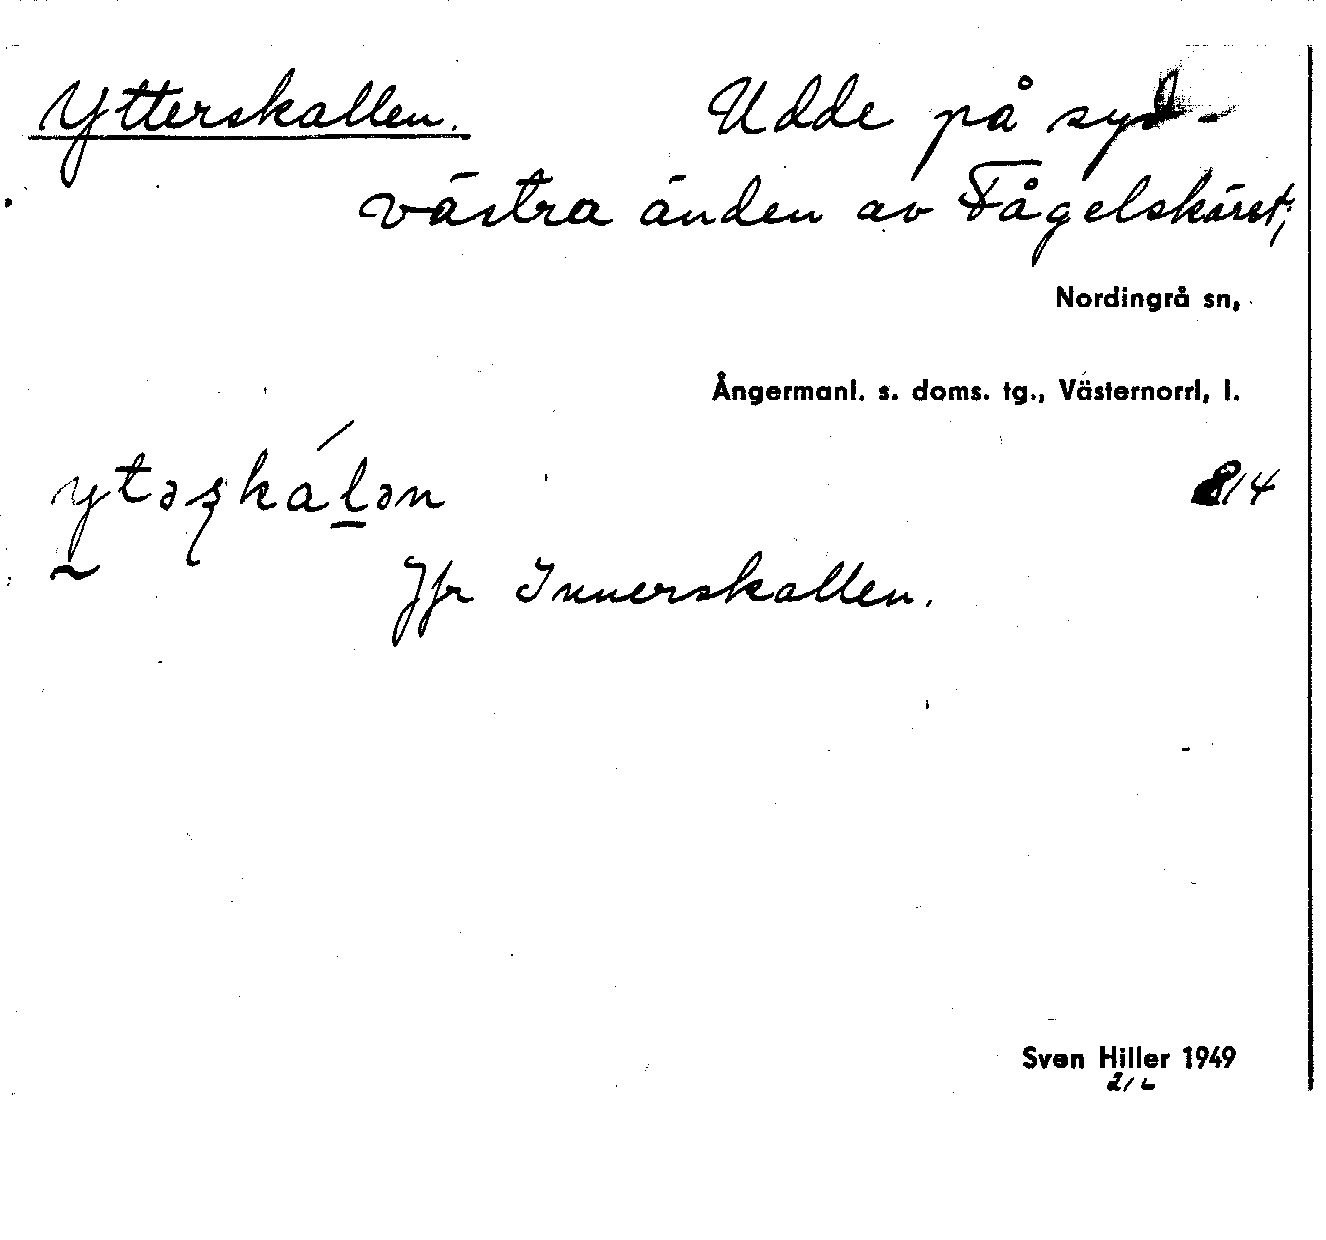 Ytterskallen. Udde på syd-
västra änden av Fågelskäret;
Nordingrå sn,
Ångermanl. s. doms. tg., Västernorrl, l.
ytəʂkáḻən 814
Jfr Innerskallen.
Sven Hiller 1949